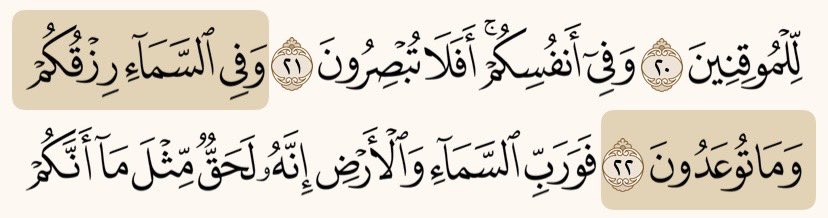 لِّلْمُوقِنِينَ ٢٠ وَفِىٓ أَنفُسِكُمْ ۚ أَفَلَا تُبْصِرُونَ ٢١ وَفِى ٱلسَّمَآءِ رِزْقُكُمْ
وَمَا تُوعَدُونَ ٢٢ فَوَرَبِّ ٱلسَّمَآءِ وَٱلْأَرْضِ إِنَّهُۥ لَحَقٌّ مِّثْلَ مَآ أَنَّكُمْ